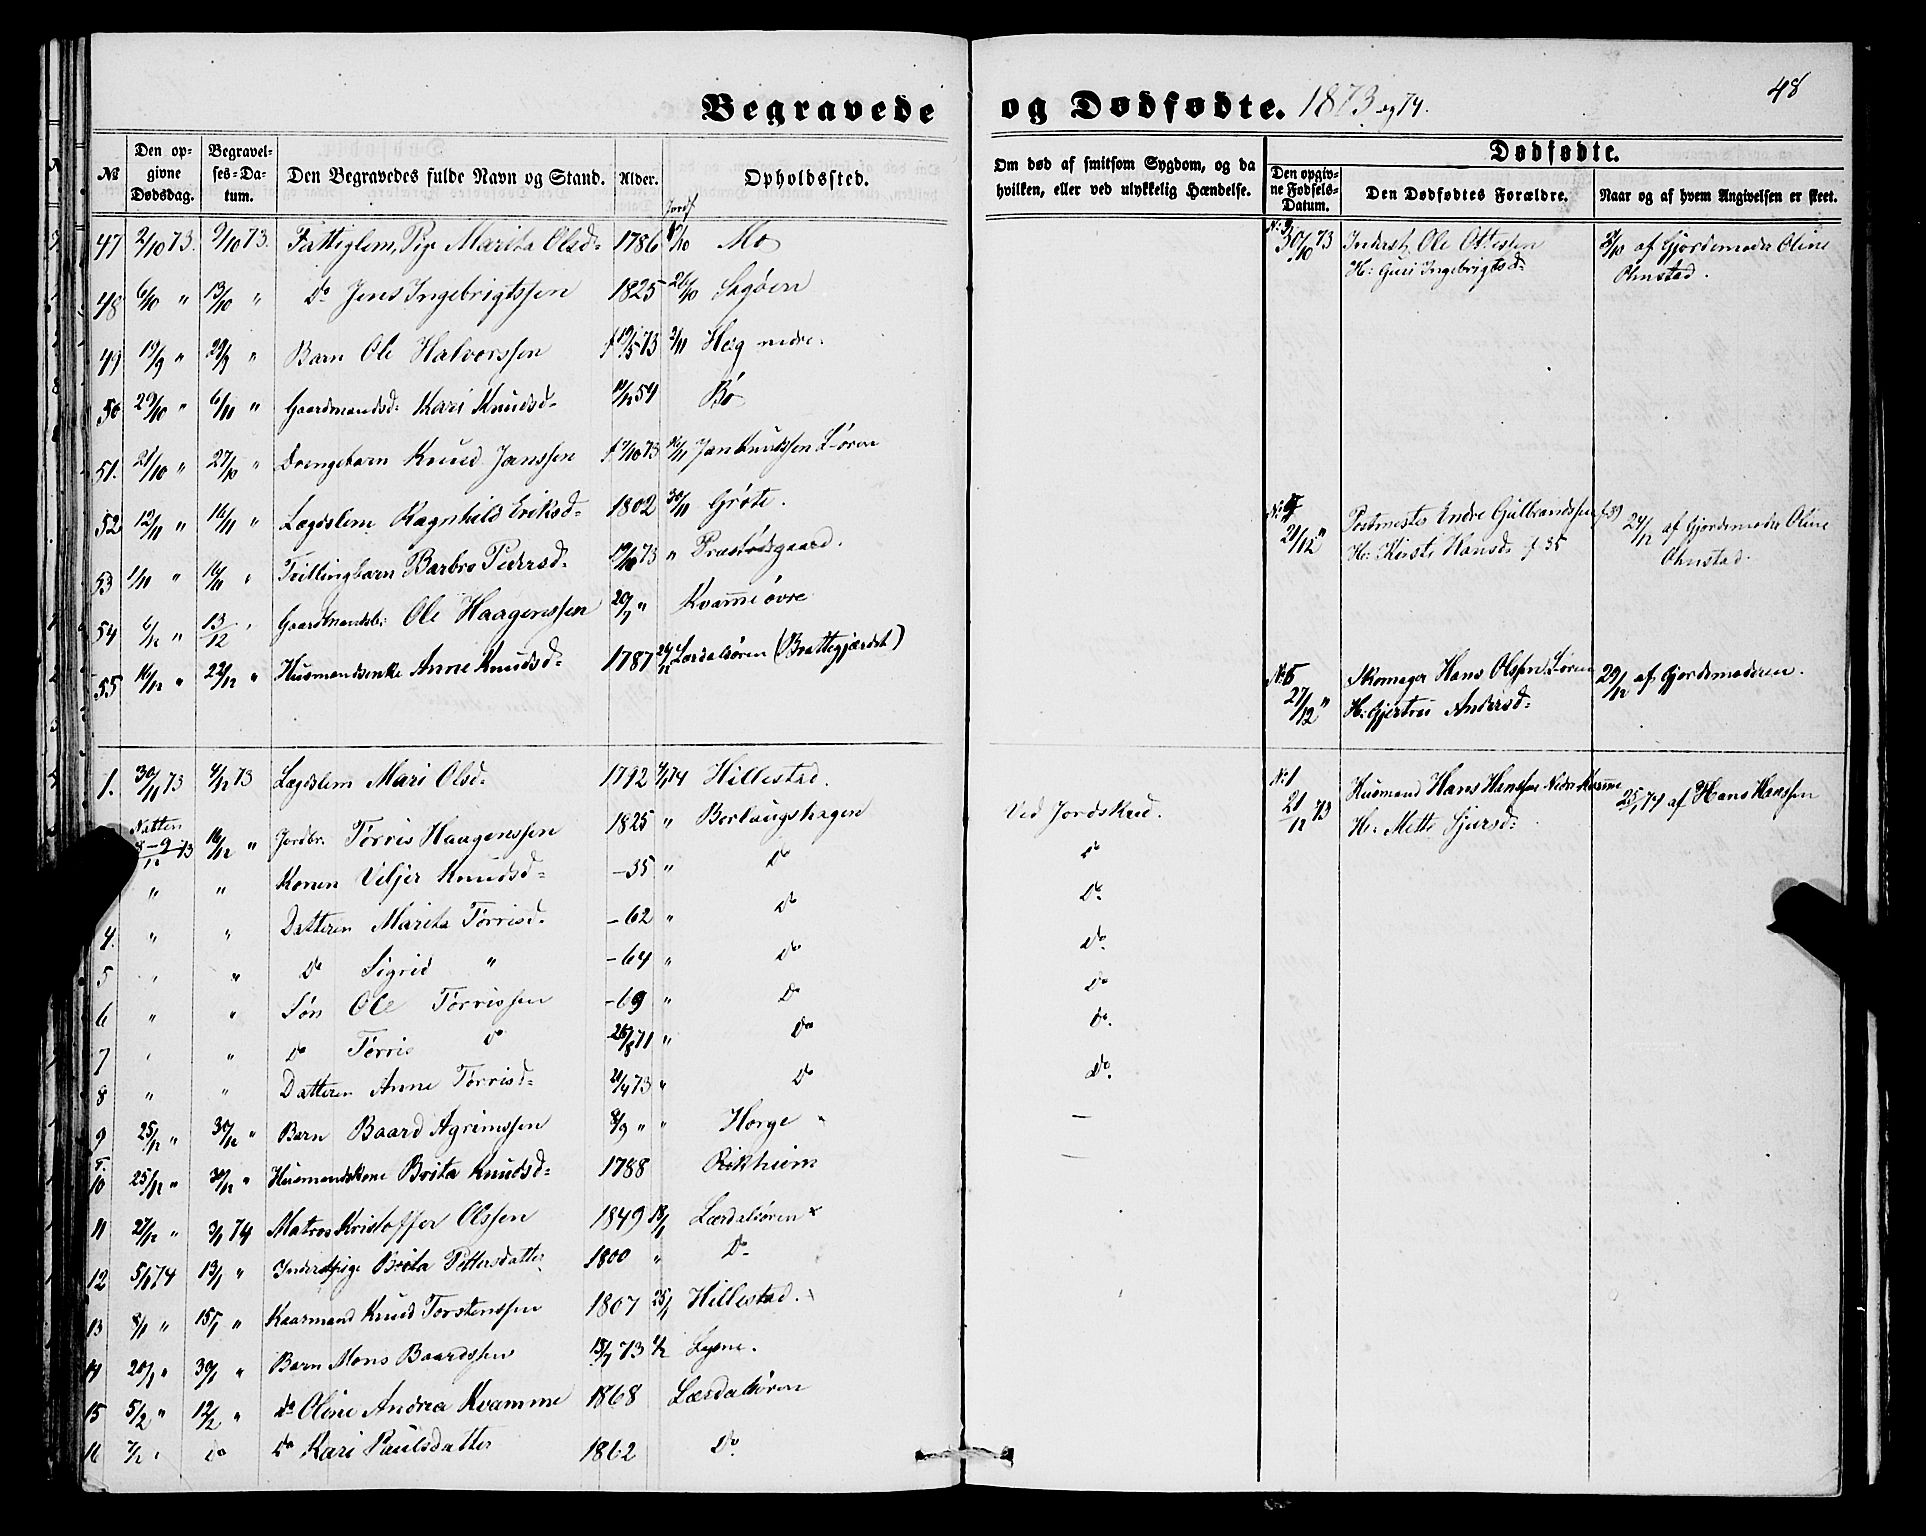 48
Begravede og Dødfødte. 1873 og 74.
№ Den opgivne Dødsdag. Begravelses-Datum. Den Begravedes fulde Navn og Stand. Alder. Opholdssted. Om død af smitsom Sygdom, og da hvilken, eller ved ulykkelig Hændelse.
Dødfødte.
Den opgivne Fødsels-Datum. Den Dødfødtes Forældre. Naar og af hvem Angivelsen er skeet.
Jordf.
47 2/10 73. 9/10 73. Fattiglem, Pige Marita Olsd. 1786 Mo
48 6/10 " 13/10 " Do Jens Ingebrigtssen 1825 26/10 Sagøen
49 19/9 " 29/9 " Barn Ole Halvorssen f 19/5 73 2/11 Hæg nedre.
50 29/10 " 6/11 " Gaardmandsd: Kari Knudsd. 54 Bø
51. 21/10 " 27/10 " Drengebarn Knud Janssen 73 Jan Knudssen Øren
52 12/11 " 16/11 " Lægdslem Ragnhild Eriksd. 1802 30/11 Grøte.
53 1/11 " 16/11 " Tvillingbarn Barbro Pedersd. 73 " Præstødegaard.
54 6/12 " 13/12 " Gaardmandsb: Ole Haagenssen 29/7 " Kvamme øvre
55 16/12 " 22/12 " Husmandsenke Anne Knudsd. 1787 Lærdalsøren (Brattegjærdet)
1. 30/11 73 4/12 73 Lægdslem Mari Olsd. 1792 74 Hillestad.
Natten 8-9/12 73 16/12 " Jordbr. Tørris Haagenssen 1825 " Borlaugshagen Ved Jordskred.
" " Konen Viljer Knudsd. -35 " Do Do
4. " " Datteren Marita Tørrisd. -62 " Do Do.
5 " " Do Sigrid " -64 " Do Do.
6 " " Søn Ole Tørrissen -69 " Do Do
7 " " Do Tørris Do 26/8 71 " Do Do.
8 " " Datteren Anne Tørrisd. 73 " Do Do.
9 25/12 " 30/12 " Barn Baard Agrimssen 8/9 " " Horge —
10 25/12 " 30/12 " Husmandskone Brita Knudsd. 1788 Rikheim —
11 27/12 " 3/1 74 Matros Kristoffer Olssen 1849 18/1 Lærdalsøren
12 5/1 74 13/1 " Inderstpige Brita Pettersdatter 1800 " Do
13 8/1 " 15/1 " Kaarmand Knud Torstenssen 1807 25/1 Hillestad.
14 20/1 " 30/1 " Barn Mons Baardssen 73 1/2 Lysne.
15 5/2 " 12/2 " do Oline Andrea Kvamme 1868 Lærdalsøren
16 7/2 " do Do Kari Paulsdatter 1862 Do.
№ 3 30/10 73 Inderst Ole Ottesen
H: Guri Ingebrigtsd.
31/10 af Gjordemoder Oline
Ohnstad.
№ 4 21/12 " Postmester Endre Gulbrandssen f. 39
H: Kirsti Hansd. f. 35
24/12 af Gjordemoder Oline
Ohnstad.
№ 5 27/12 " Skomager Hans Olssen Øren
H: Gjertrui Andersd.
29/12 af Gjordemoderen.
№ 1 21/12 73 Husmand Hans Hanssen Nedre Kvamme
H: Mette Sjursd.
25/1 74 af Hans Hanssen